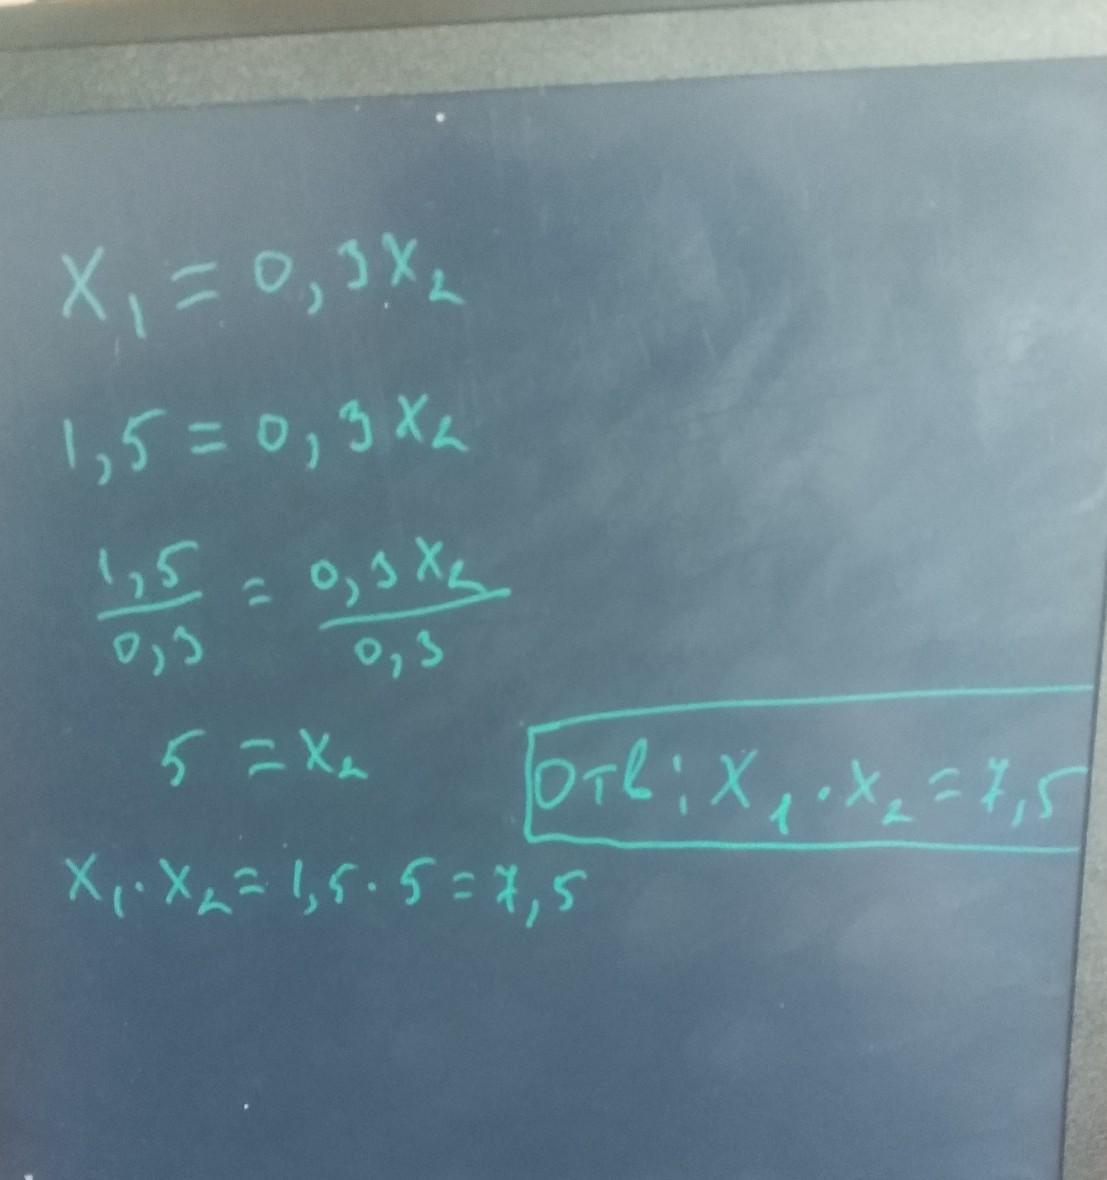 X₁ = 0,3X₂
1,5 = 0,3X₂
1,5/0,3 = 0,3X₂/0,3
5 = X₂
Отв: X₁ · X₂ = 7,5
X₁ · X₂ = 1,5 · 5 = 7,5